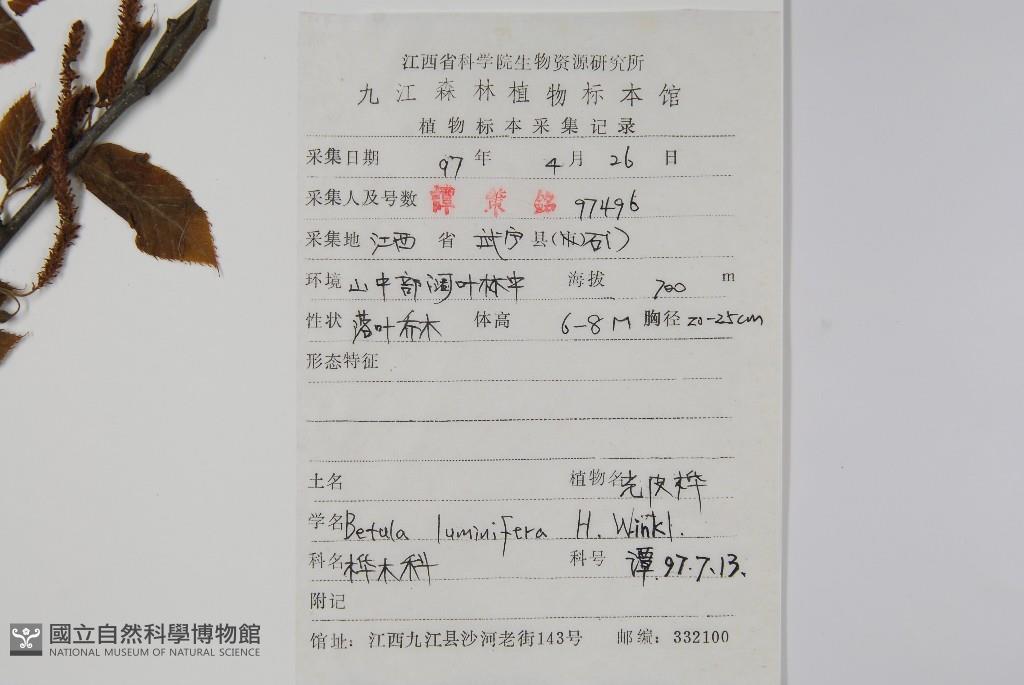 江西省科学院生物资源研究所
九江森林植物标本馆
植物标本采集记录
采集日期 97 年 4 月 26 日
采集人及号数 譚策銘 97496
采集地 江西 省 武宁 县(石门)
环境 山中部阔叶林中 海拔 700 m
性状 落叶乔木 体高 6-8 M 胸径 20-25cm
形态特征
土名 植物名 光皮桦
学名 Betula luminifera H. Winkl.
科名 桦木科 科号 譚 97.7.13.
附记
馆址：江西九江县沙河老街143号 邮编：332100
國立自然科學博物館
NATIONAL MUSEUM OF NATURAL SCIENCE